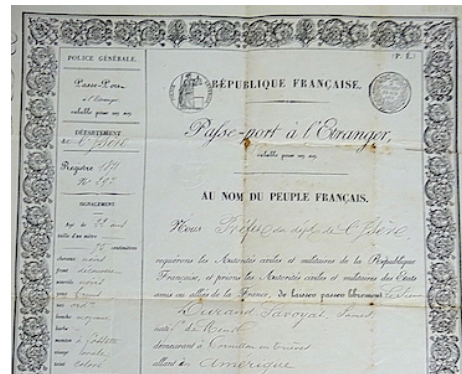 POLICE GÉNÉRALE.
Passe-Port
à l'Étranger
valable pour un an
DÉPARTEMENT
de l'Isère
Registre
N°
SIGNALEMENT
Agé de 22 ans
taille d'un mètre
centimètres
cheveux noirs
front découvert
sourcils noirs
yeux
nez ord.re
bouche moyenne
barbe
menton à fossette
visage ovale
teint coloré
(P. E.)
RÉPUBLIQUE FRANÇAISE.
Passe-port à l'Etranger,
valable pour un an.
AU NOM DU PEUPLE FRANÇAIS.
Nous Préfet du dépt de l'Isère,
requérons les Autorités civiles et militaires de la République
Française, et prions les Autorités civiles et militaires des États
amis ou alliés de la France, de laisser passer librement le Sieur
Durand Savoyat,
natif de
demeurant à Cornillon en Trièves
allant en Amérique